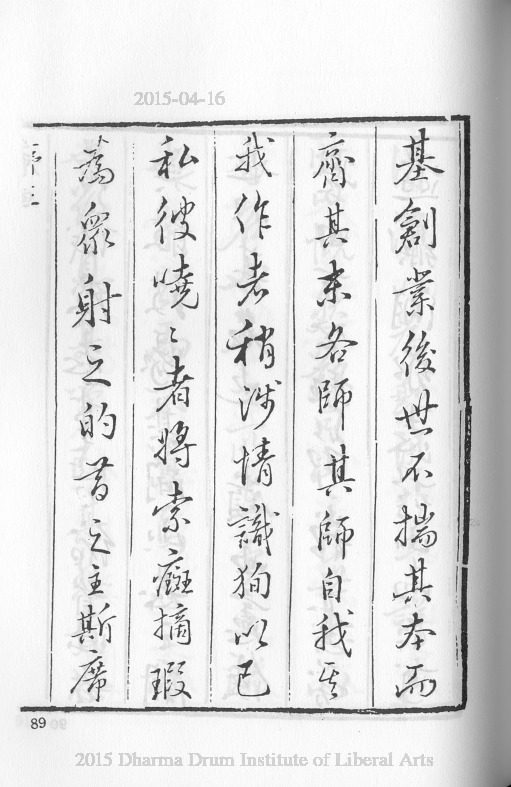 2015-04-16
基創業後世不揣其本而
齊其末各師其師自我其
我作者稍涉情識狥以己
私彼嘵〻者將索癡摘瑕
為眾射之的昔之主斯席
序三
89
2015 Dharma Drum Institute of Liberal Arts